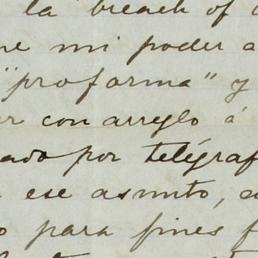 la "breach of
me mi poder a
"proforma" y
con arreglo á
por telégraf
ese asunto, a
para fines f